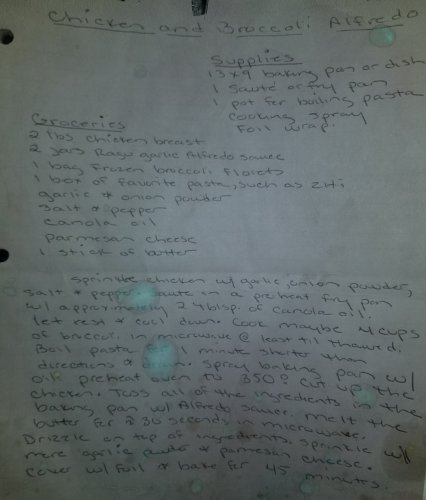 Chicken and Broccoli Alfredo
Supplies
13x9 baking pan or dish
1 sauté or fry pan
1 pot for boiling pasta
cooking spray
Foil wrap
Groceries
2 lbs chicken breast
2 jars Ragu garlic Alfredo sauce
1 bag frozen broccoli florets
1 box of favorite pasta, such as Ziti
garlic & onion powder
Salt & pepper
canola oil
parmesan cheese
1 stick of butter
Sprinkle chicken w/ garlic, onion powder,
salt & pepper. Saute in a preheat fry pan
w/ approximately 2 tblsp. of canola oil.
let rest & cool down. Cook maybe 4 cups
of broccoli in microwave @ least til thawed.
Boil pasta 1 minute shorter than
directions & drain. Spray baking pan w/
oil. preheat oven to 350° Cut up the
chicken. Toss all of the ingredients in the
baking pan w/ Alfredo sauce. Melt the
butter for 30 seconds in microwave.
Drizzle on top of ingredients. Sprinkle w/
more garlic powder & parmesan cheese.
Cover w/ foil & bake for 45 minutes.